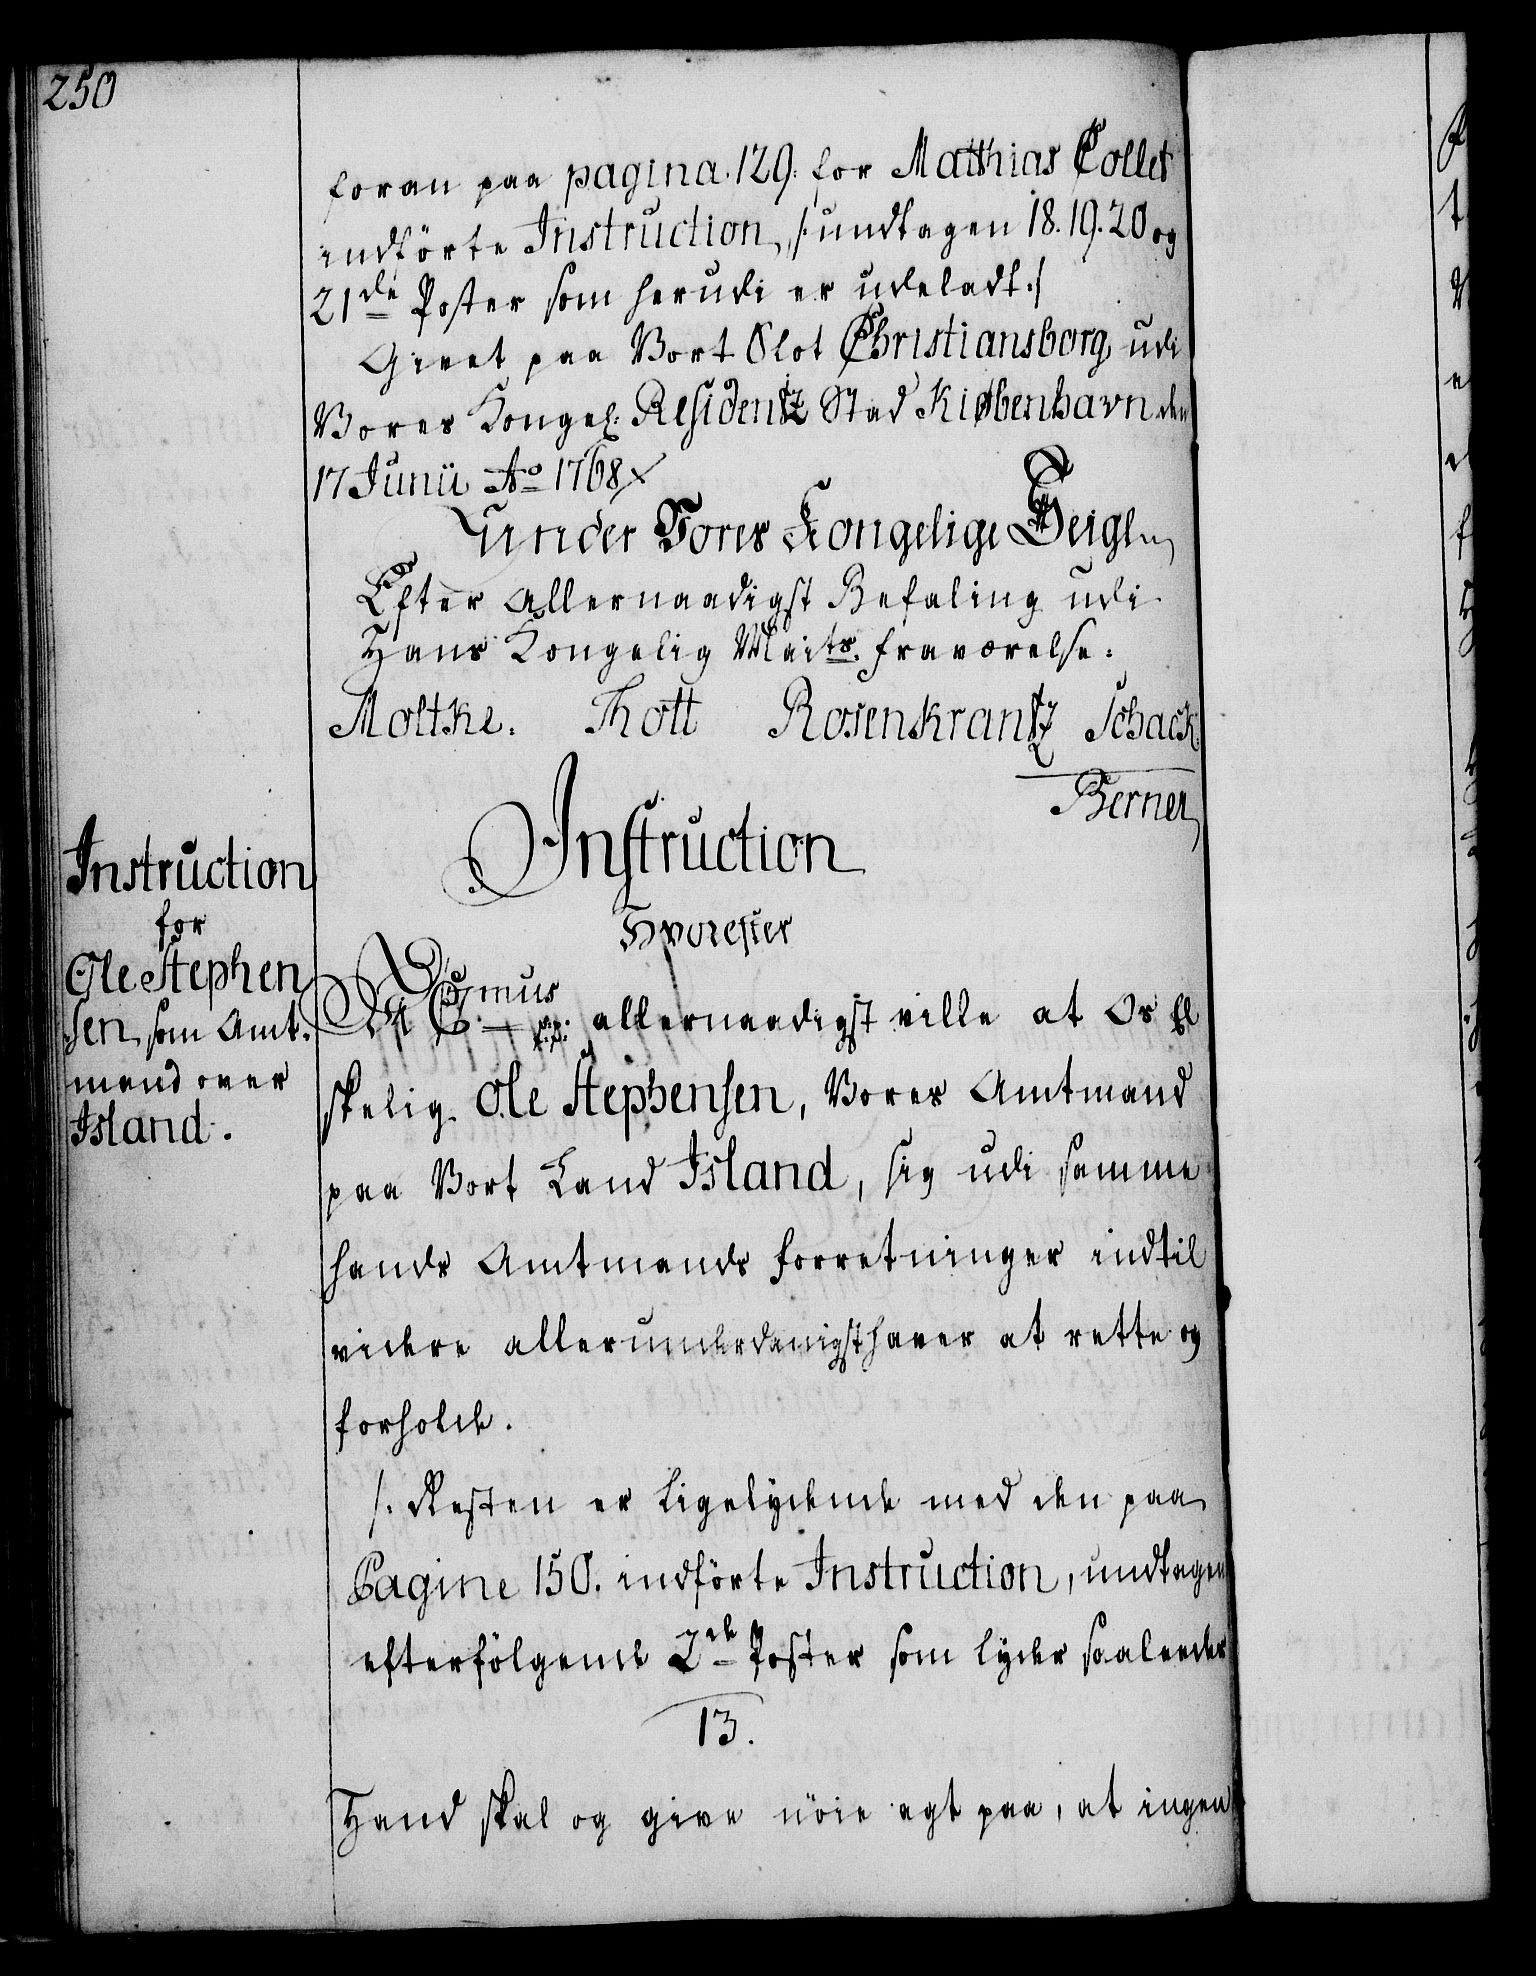 250
foran paa pagina 129. for Matthias Collet
indförte Instruction, /: undtagen 18. 19. 20 og
21de Poster som herudi er udeladt :/
Givet paa Vort Slot Christiansborg udi
Vores Kongel: Residentz Stad Kiøbenhavn den
17 Junii Ao 1768
Under Vores Kongelige Seigl
Efter Allernaadigst Befaling udi
Hans Kongelig Maits. fraværelse.
Moltke. Thott Rosenkrantz Schack
Berner
Instruction
for
Ole Stephen
sen, som Amt-
mand over
Island.
Instruction
Hvorefter
Vi C. 7mus p.p. allernaadigst ville at Os El
skelig Ole Stephensen, Vores Amtmand
paa Vort Land Island, sig udi samme
hands Amtmands forretninger indtil
videre allerunderdanigst haver at rette og
forholde.
/: Resten er ligelydende med den paa
Pagine 150. indförte Instruction, undtagen
efterfölgende 2de Poster som lyder saaleedes
13.
Hand skal og give nöie agt paa, at ingen